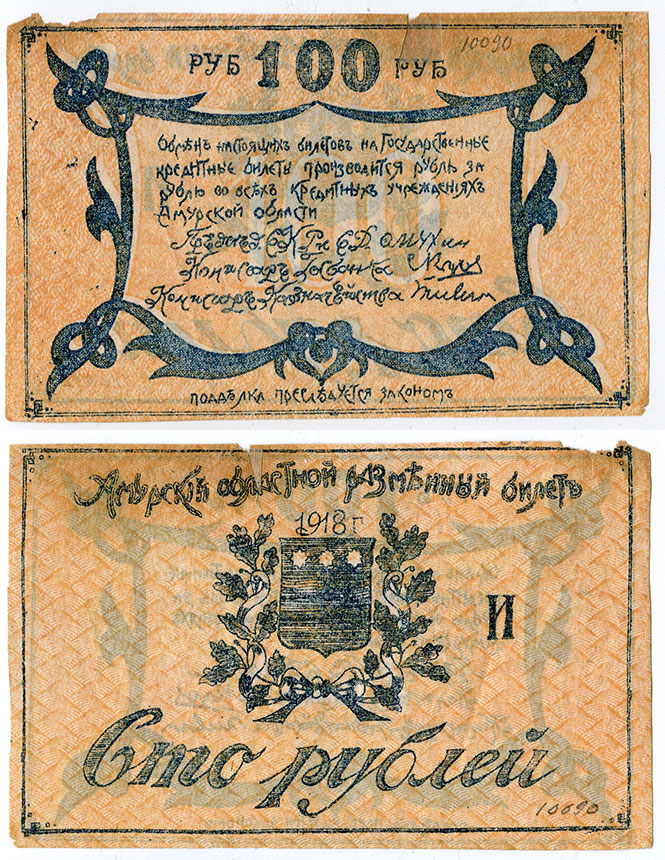 РУБ 100 РУБ
10090
Обмѣнъ настоящихъ билетовъ на Государственные
кредитные билеты производится рубль за
рубль во всѣхъ кредитныхъ учрежденiяхъ
Амурской области
Предсѣд. С.К.Р. и С.Д. Ө. Мухин
Комисаръ Госбанка
Комисаръ Казначѣйства
поддѣлка преслѣдуется закономъ
Амурскiй областной размѣнный билетъ
1918 г
И
Сто рублей
10090